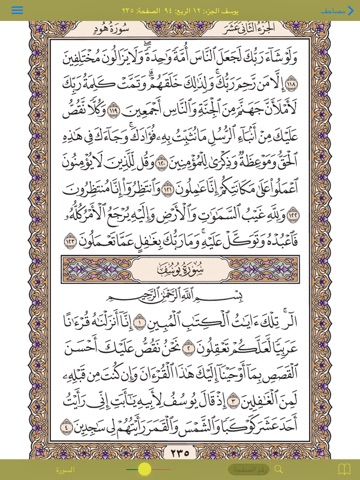 مصاحف
يوسف الجزء: ١٢ الربع: ٩٤ الصفحة: ٢٣٥
الجزء الثاني عشر
سورة هود
وَلَوْ شَاءَ رَبُّكَ لَجَعَلَ النَّاسَ أُمَّةً وَاحِدَةً ۖ وَلَا يَزَالُونَ مُخْتَلِفِينَ
١١٨ إِلَّا مَن رَّحِمَ رَبُّكَ ۚ وَلِذَٰلِكَ خَلَقَهُمْ ۗ وَتَمَّتْ كَلِمَةُ رَبِّكَ
لَأَمْلَأَنَّ جَهَنَّمَ مِنَ الْجِنَّةِ وَالنَّاسِ أَجْمَعِينَ ١١٩ وَكُلًّا نَّقُصُّ
عَلَيْكَ مِنْ أَنبَاءِ الرُّسُلِ مَا نُثَبِّتُ بِهِ فُؤَادَكَ ۚ وَجَاءَكَ فِي هَٰذِهِ
الْحَقُّ وَمَوْعِظَةٌ وَذِكْرَىٰ لِلْمُؤْمِنِينَ ١٢٠ وَقُل لِّلَّذِينَ لَا يُؤْمِنُونَ
اعْمَلُوا عَلَىٰ مَكَانَتِكُمْ إِنَّا عَامِلُونَ ١٢١ وَانتَظِرُوا إِنَّا مُنتَظِرُونَ
١٢٢ وَلِلَّهِ غَيْبُ السَّمَاوَاتِ وَالْأَرْضِ وَإِلَيْهِ يُرْجَعُ الْأَمْرُ كُلُّهُ
فَاعْبُدْهُ وَتَوَكَّلْ عَلَيْهِ ۚ وَمَا رَبُّكَ بِغَافِلٍ عَمَّا تَعْمَلُونَ ١٢٣
سُورَةُ يُوسُفَ
بِسْمِ اللَّهِ الرَّحْمَٰنِ الرَّحِيمِ
الر ۚ تِلْكَ آيَاتُ الْكِتَابِ الْمُبِينِ ١ إِنَّا أَنزَلْنَاهُ قُرْءَانًا
عَرَبِيًّا لَّعَلَّكُمْ تَعْقِلُونَ ٢ نَحْنُ نَقُصُّ عَلَيْكَ أَحْسَنَ
الْقَصَصِ بِمَا أَوْحَيْنَا إِلَيْكَ هَٰذَا الْقُرْءَانَ وَإِن كُنتَ مِن قَبْلِهِ
لَمِنَ الْغَافِلِينَ ٣ إِذْ قَالَ يُوسُفُ لِأَبِيهِ يَا أَبَتِ إِنِّي رَأَيْتُ
أَحَدَ عَشَرَ كَوْكَبًا وَالشَّمْسَ وَالْقَمَرَ رَأَيْتُهُمْ لِي سَاجِدِينَ ٤
٢٣٥
السورة
رقم الصفحة